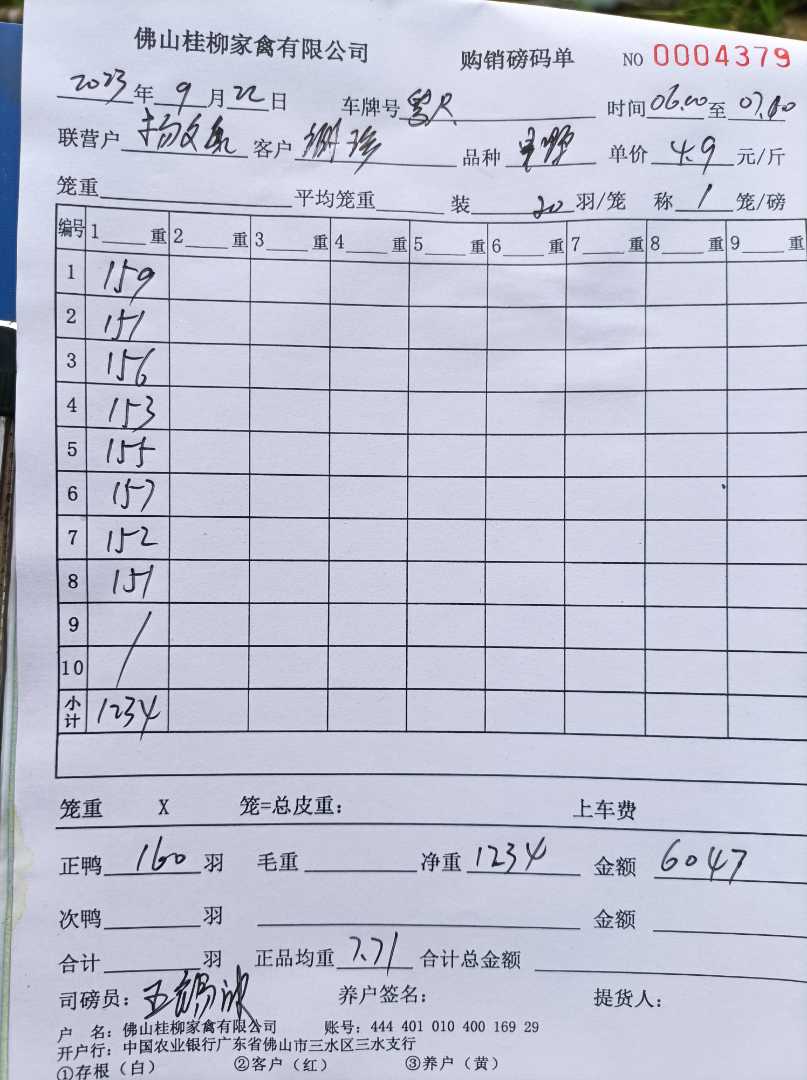 佛山桂柳家禽有限公司 购销磅码单 NO 0004379
2023年 9月22日 车牌号 时间06.00至07.00
联营户 杨文 客户 谢珍 品种 单价 4.9 元/斤
笼重 平均笼重 装 20 羽/笼 称 1 笼/磅
编号 1 重 2 重 3 重 4 重 5 重 6 重 7 重 8 重 9 重
1 159
2 151
3 156
4 153
5 155
6 157
7 152
8 151
9 /
10
小计 1234
笼重 X 笼=总皮重: 上车费
正鸭 160 羽 毛重 净重 1234 金额 6047
次鸭 羽 金额
合计 羽 正品均重 7.71 合计总金额
司磅员: 王锡 养户签名: 提货人:
户 名: 佛山桂柳家禽有限公司 账号: 444 401 010 400 169 29
开户行: 中国农业银行广东省佛山市三水区三水支行
①存根(白) ②客户(红) ③养户(黄)